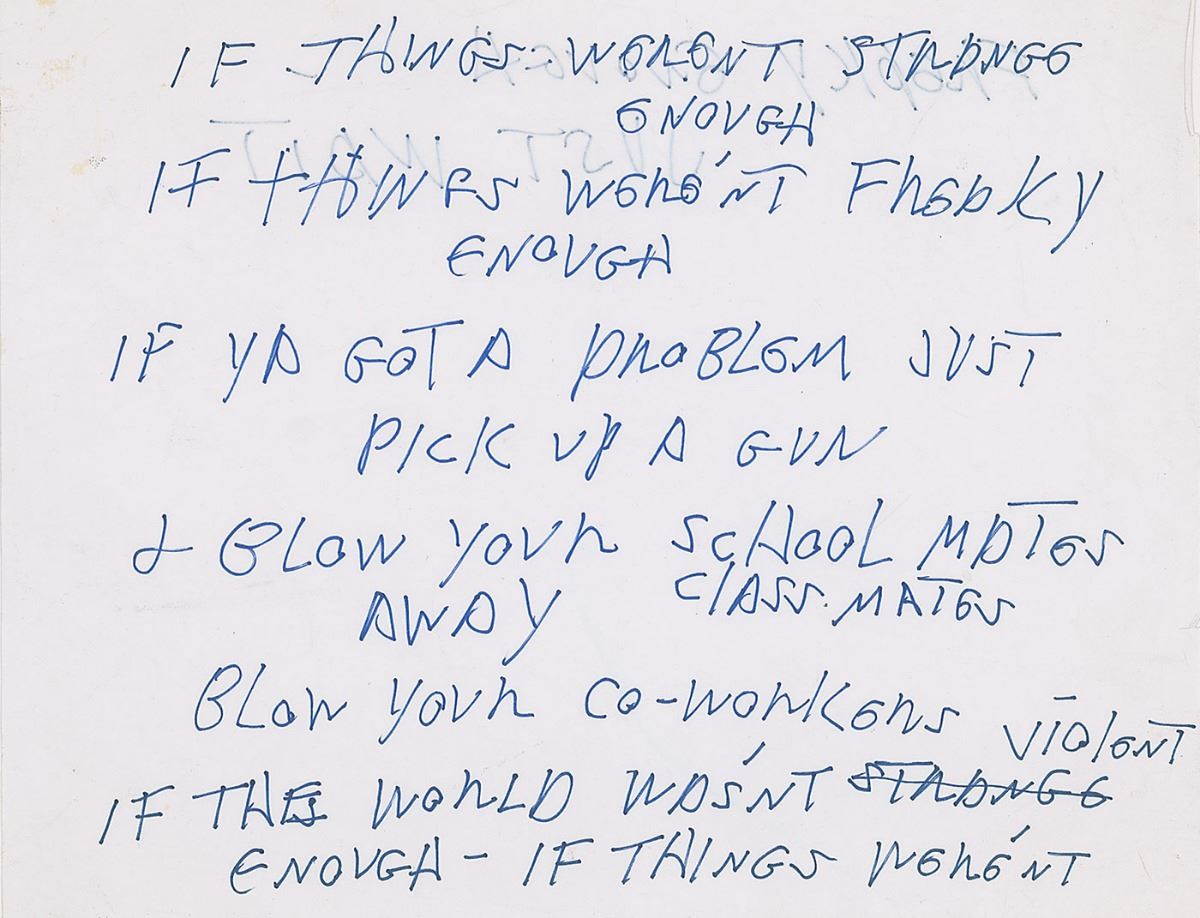 IF THINGS WERENT STRANGE
ENOUGH
IF THINGS WERE'NT FREAKY
ENOUGH
IF YA GOT A PROBLEM JUST
PICK UP A GUN
& BLOW YOUR SCHOOL MATES
AWAY CLASS MATES
BLOW YOUR CO-WORKERS
VIOLENT
IF THIS WORLD WAS'NT STRANGE
ENOUGH - IF THINGS WERE'NT